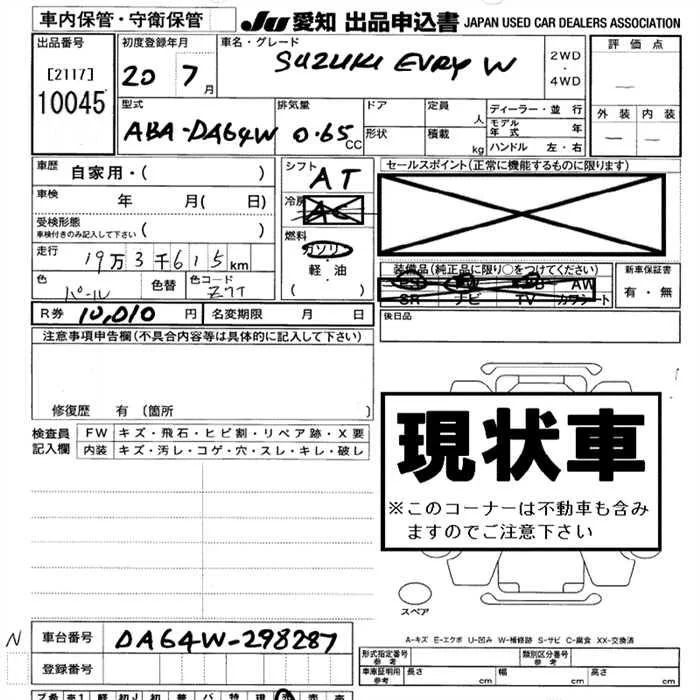 車内保管・守衛保管
JU 愛知 出品申込書 JAPAN USED CAR DEALERS ASSOCIATION
出品番号 初度登録年月 車名・グレード 評価点
[2117] 20 7月 SUZUKI EVRY W 2WD・4WD
10045
型式 排気量 ドア 定員 ディーラー・並行 外装 内装
ABA-DA64W 0.65CC 形状 人 積載 kg モデル年式 年
ハンドル 左・右
車歴 自家用・( ) シフト AT セールスポイント(正常に機能するものに限ります)
車検 年 月( 日) 冷房 AC
受検形態
車検付きのみ記入して下さい ( )
燃料 ガソリン・軽油 ( )
走行 19万3千615km
装備品(純正品に限り○をつけてください) 新車保証書
PS PW PB AW 有・無
SR ナビ TV カワシート
色 パール 色替 色コード Z7T
R券 10,010円 名変期限 月 日 後日品
注意事項申告欄(不具合内容等は具体的に記入して下さい)
修復歴 有(箇所 )
現状車
※このコーナーは不動車も含み
ますのでご注意下さい
検査員 FW キズ・飛石・ヒビ割・リペア跡・X要
記入欄 内装 キズ・汚レ・コゲ・穴・スレ・キレ・破レ
スペア
A-キズ E-エクボ U-凹み W-補修跡 S-サビ C-腐食 XX-交換済
N 車台番号 DA64W-298287
登録番号
形式指定番号 参考 類別区分番号 参考
車庫証明用 参考 長さ cm 幅 cm 高さ cm